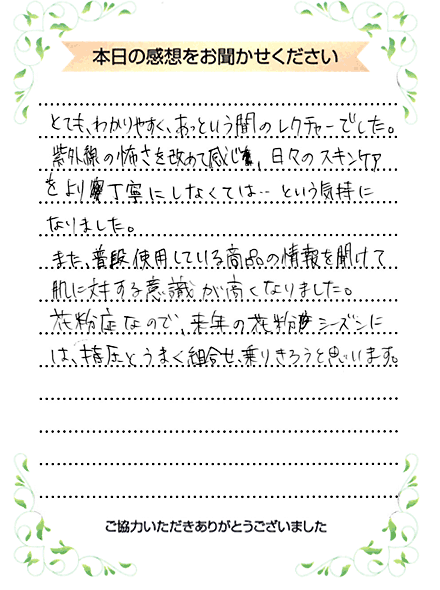 本日の感想をお聞かせください
とても、わかりやすく、あっという間のレクチャーでした。
紫外線の怖さを改めて感じ、日々のスキンケア
をより丁寧にしなくては…という気持に
なりました。
また、普段使用している商品の情報を聞けて
肌に対する意識が高くなりました。
花粉症なので、来年の花粉シーズンに
は、指圧とうまく組合せ、乗りきろうと思います。
ご協力いただきありがとうございました